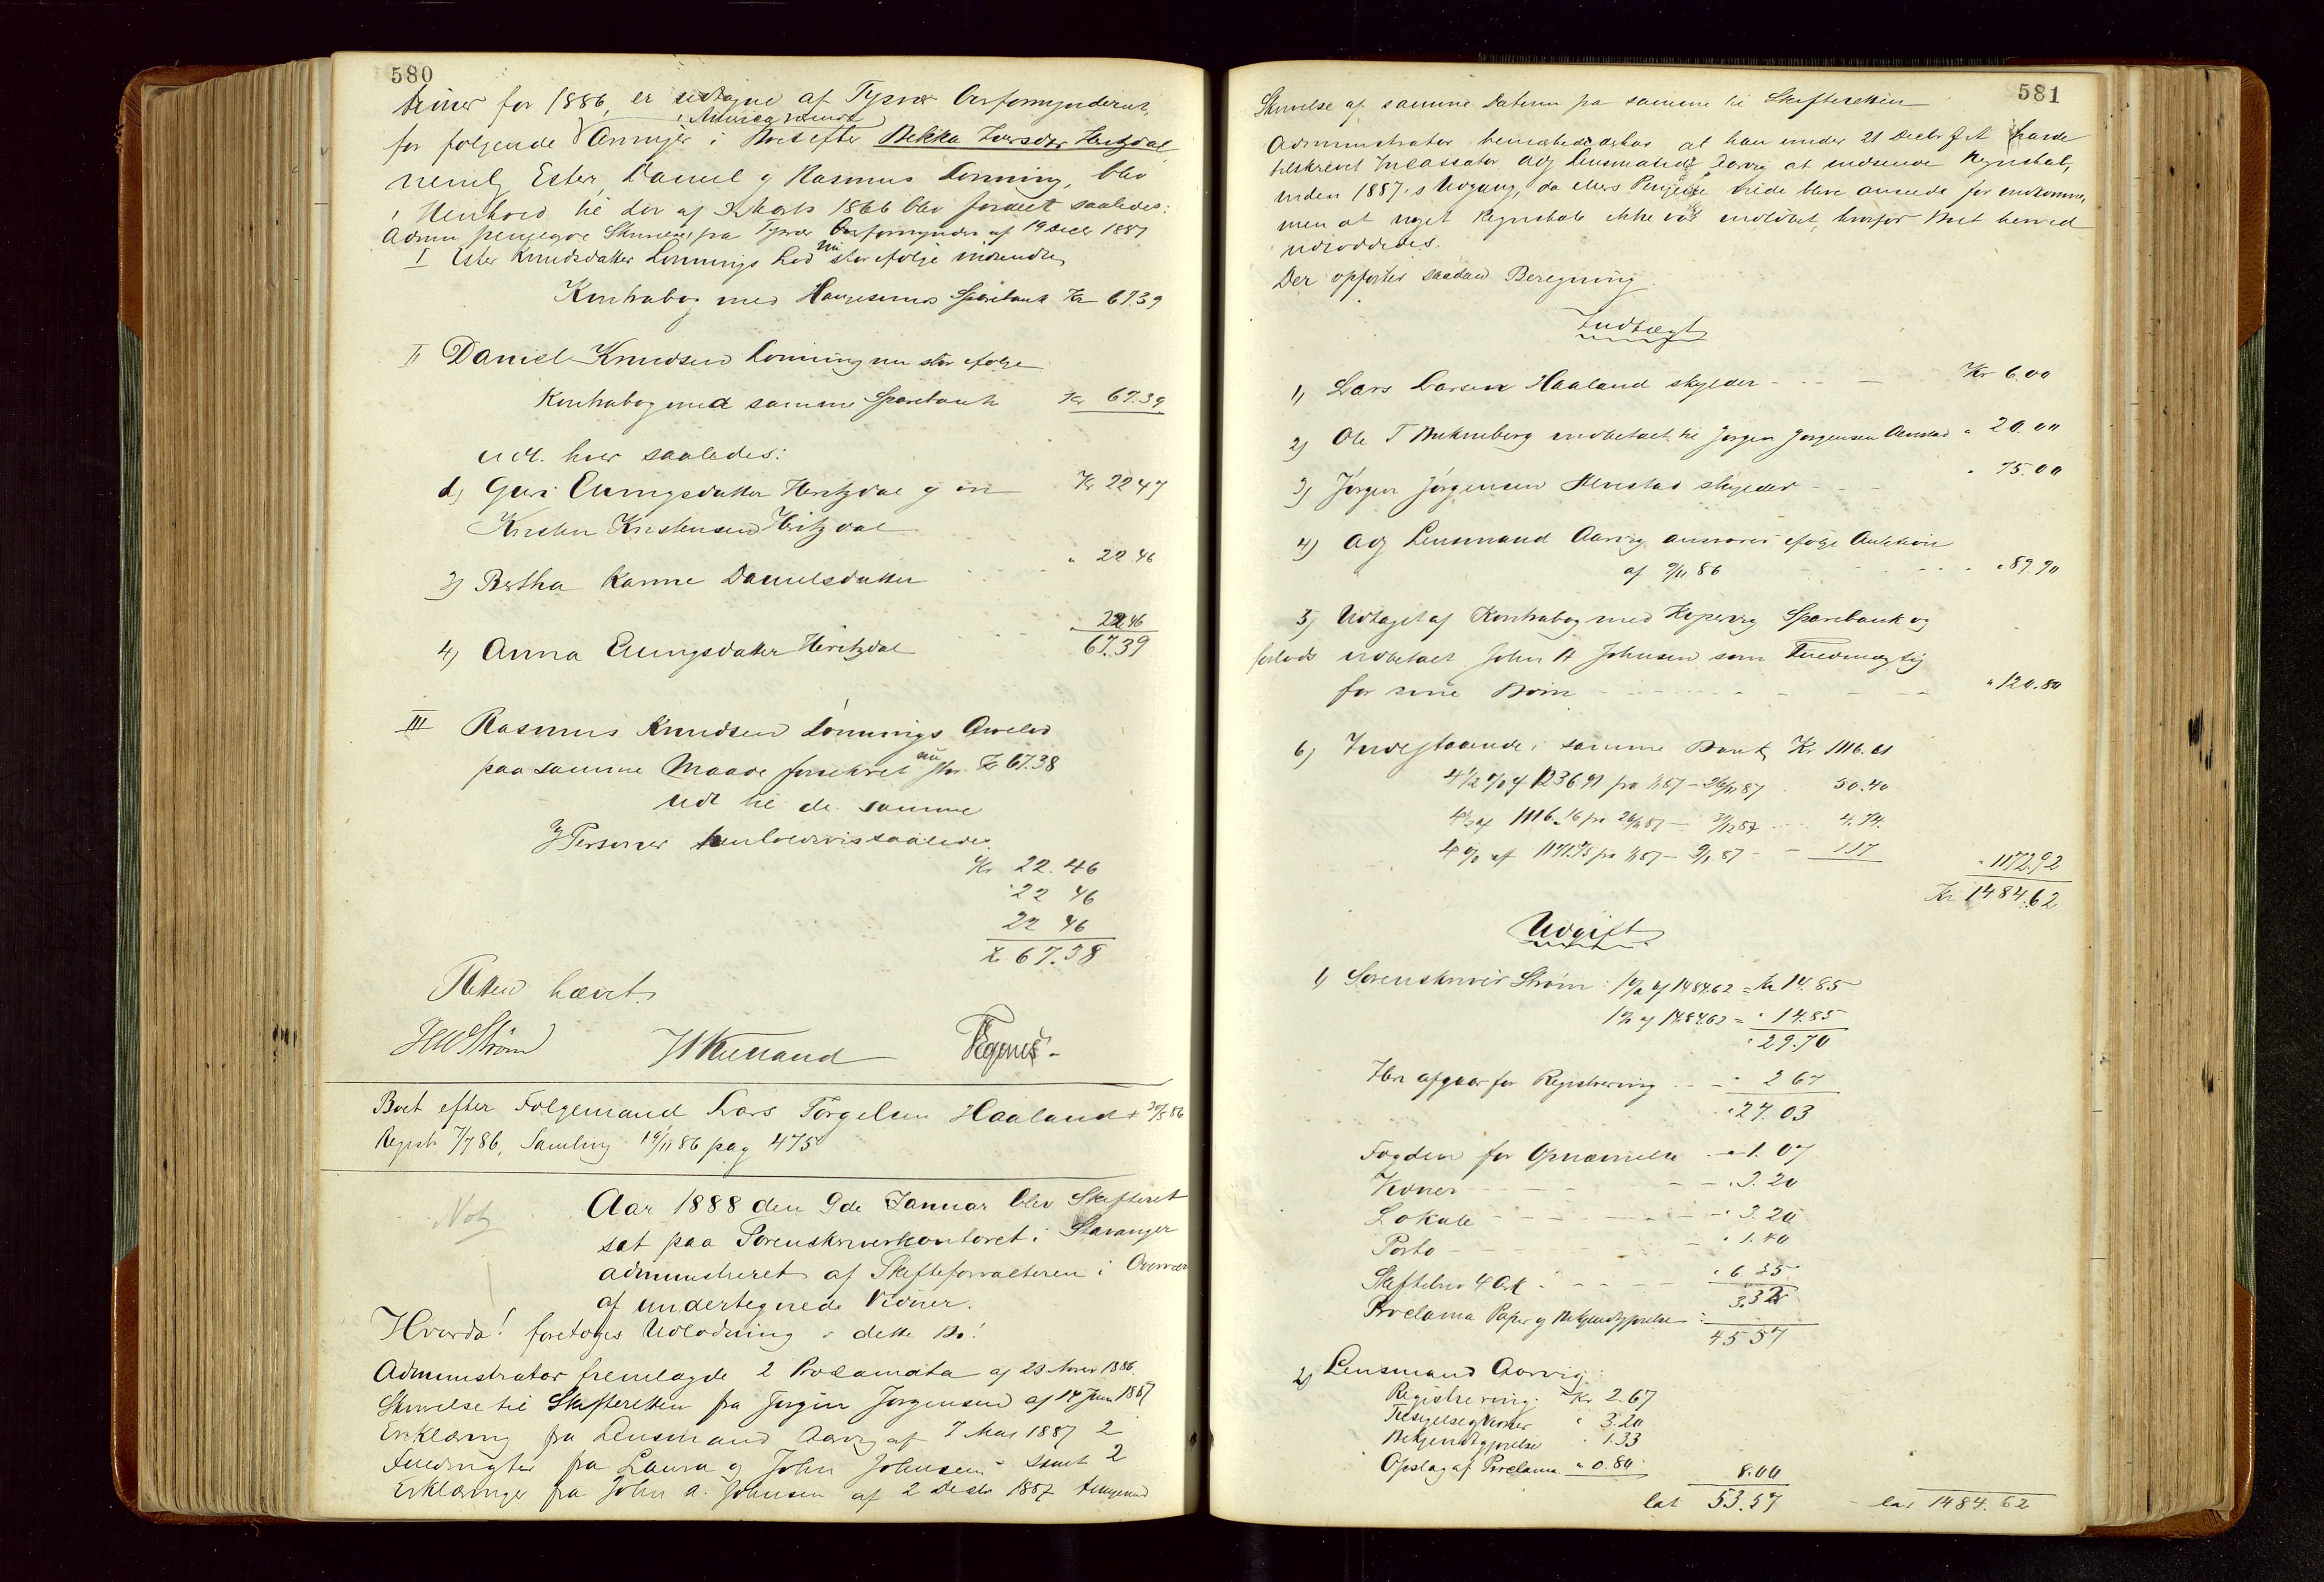 580
for 1886, er udtagne af Tysvær Overformynderi
for følgende i Boet efter Bekka Iversdtr Heritzdal
nemlig Ester, Daniel og Rasmus Lønning, blev
i Henhold til Lov af 1866 blev fordelt saaledes:
Skrivelse fra Tysvær Overformynder af 19 Decbr 1887
I Ester Knudsdatter Lønnings Lod nu stor ifølge
Kontrabog med Haugesunds Sparebank Kr 67.39
II Daniel Knudsen Lønning nu stor ifølge
Kontrabog med samme Sparebank Kr 67.39
Udl. hver saaledes:
Guri Ellingsdatter Heritzdal Kr 22 47
Kristen Kristensen Heritzdal
3) Bertha Karine Danielsdatter " 22.46
4) Anna Ellingsdatter Heritzdal " 22.46
67.39
III Rasmus Knudsen Lønnings Arvelod
paa samme Maade forsikret nu stor Kr 67.38
Udl til de samme
3 Personer henholdsvis saaledes
Kr 22.46
" 22 46
22 46
Kr 67.38
Retten hævet.
Strøm
Boet efter Følgemand Lars Torgelsen Haaland + 30/5 86
Registr. 7/7 86, Samling 19/11 86 pag 475
Not
Aar 1888 den 9de Januar blev Skifteret
sat paa Sorenskriverkontoret i Stavanger
administreret af Skifteforvalteren i Overvær
af undertegnede Vidner.
Hvorda! foretoges Udlodning i dette Bo!
Administrator fremlagde 2 Proclamata af 23 1886.
Skrivelse til Skifteretten fra Jørgen Jørgensen af 14 Juni 1887
Erklæring fra Lensmand Aarvig af 7 Mai 1887 2
Fuldmagter fra Laura og John Johnsen samt 2
Erklæringer fra John A. Johnsen af 2 Decbr 1887
581
Skrivelse af samme Datum fra samme til Skifteretten
Administrator bemærkede at han under 21 Decbr havde
tilskrevet Incassator adj Lensmand Aarvig at indsende Regnskab,
inden 1887's Udgang, da ellers Pengene vilde blive ansede for indkomne,
men at noget Regnskab ikke var indløbet, hvorfor Boet herved
udloddedes.
Der opførtes saadan Beregning.
Indtægt
1) Lars Larsen Haaland skylder Kr 6.00
2) Ole T indbetalt til Jørgen Jørgensen " 20.00
3) Jørgen Jørgensen skylder " 75.00
4) Adj Lensmand Aarvig ansvarer ifølge Auktion
af 9/11 86 " 89.90
5) Udtaget af Kontrabog med Kopervig Sparebank og
forlods indbetalt John A Johnsen som Fuldmægtig
for sine Børn " 120.80
6) Indestaaende i samme Bank Kr 1116.61
4 1/2 % af 1236.91 fra 1/1 87 - 26/11 87 50.40
4 1/2 af 1116.16 fra 26/11 87 - 31/12 87 4.74
4 % af fra 1/1 87 - 9/1 87 1.17
" 1172.92
Kr 1484.62
Udgift
1) Sorenskriver Strøm: 1 % af 1484.62 = Kr 14.85
1 % af 1484.62 = " 14.85
" 29.70
Her afgaar for Registrering " 2 67
" 27.03
Fogden for Opnævnelse " 1.07
Vidner " 3.20
Lokale " 3.20
Porto " 1.40
Skiftebrev 4 Ark " 6.35
Proclama Papir og Bekjendtgjørelse 3.32
45 57
2) Lensmand Aarvig:
Registrering Kr 2.67
Tilsigelse af Vidner " 3.20
Bekjendtgjørelse " 1.33
Opslag af Proclama " 0.80 8.00
lat 53.57 lat 1484.62